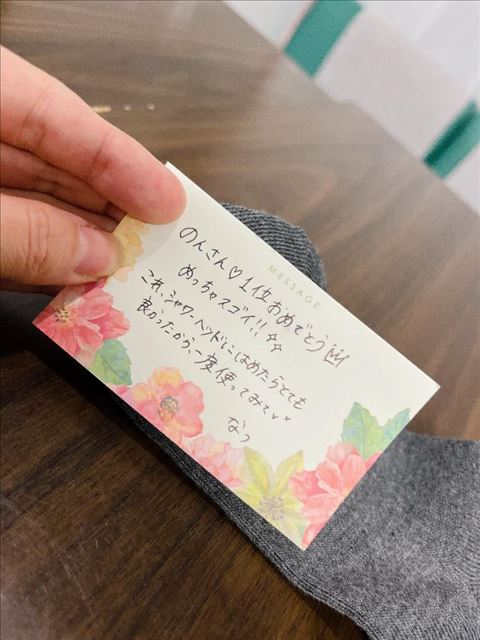 MESSAGE
のんさん♡1位おめでとう
めっちゃスゴイ!!☆☆
これ、シャワーヘッドにはめたらとても
良かったから、一度使ってみて♥♥
なつ